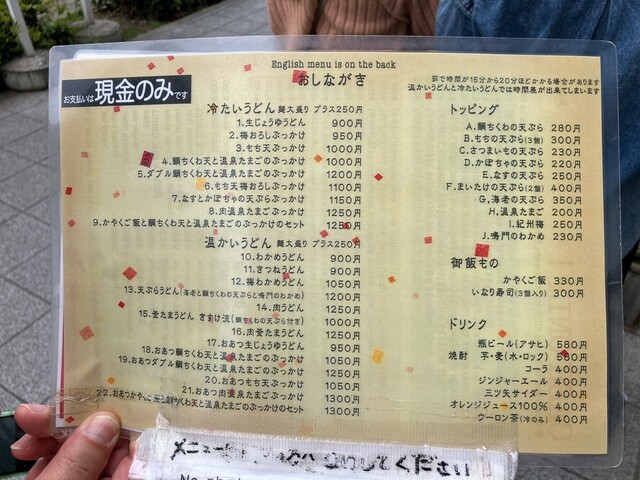 English menu is on the back
おしながき
お支払いは現金のみです
茹で時間が15分から20分ほどかかる場合があります
温かいうどんと冷たいうどんでは時間差が出来てしまいます
冷たいうどん 麺大盛り プラス250円
1.生じょうゆうどん 900円
2.梅おろしぶっかけ 950円
3.もち天ぶっかけ 1000円
4.鯛ちくわ天と温泉たまごのぶっかけ 1000円
5.ダブル鯛ちくわ天と温泉たまごのぶっかけ 1200円
6.もち天梅おろしぶっかけ 1100円
7.なすとかぼちゃの天ぷらぶっかけ 1150円
8.肉温泉たまごぶっかけ 1250円
9.かやくご飯と鯛ちくわ天と温泉たまごのぶっかけのセット 1250円
温かいうどん 麺大盛り プラス250円
10.わかめうどん 900円
11.きつねうどん 900円
12.梅わかめうどん 1050円
13.天ぷらうどん(海老と鯛ちくわの天ぷらと鳴門のわかめ) 1200円
14.肉うどん 1250円
15.釜たまうどん きすけ流(鯛ちくわの天ぷら付き) 1000円
16.肉釜たまうどん 1250円
17.おあつ生じょうゆうどん 950円
18.おあつ鯛ちくわ天と温泉たまごのぶっかけ 1050円
19.おあつダブル鯛ちくわ天と温泉たまごのぶっかけ 1250円
20.おあつもち天ぶっかけ 1050円
21.おあつ肉温泉たまごのぶっかけ 1300円
22.おあつかやくご飯と鯛ちくわ天と温泉たまごのぶっかけのセット 1300円
トッピング
A.鯛ちくわの天ぷら 280円
B.もちの天ぷら(3個) 300円
C.さつまいもの天ぷら 230円
D.かぼちゃの天ぷら 220円
E.なすの天ぷら 250円
F.まいたけの天ぷら(2個) 400円
G.海老の天ぷら 350円
H.温泉たまご 200円
I.紀州梅 250円
J.鳴門のわかめ 230円
御飯もの
かやくご飯 330円
いなり寿司(3個入り) 300円
ドリンク
瓶ビール(アサヒ) 580円
焼酎 芋・麦(水・ロック) 580円
コーラ 400円
ジンジャーエール 400円
三ツ矢サイダー 400円
オレンジジュース100% 400円
ウーロン茶(冷のみ) 400円
メニュー
してください